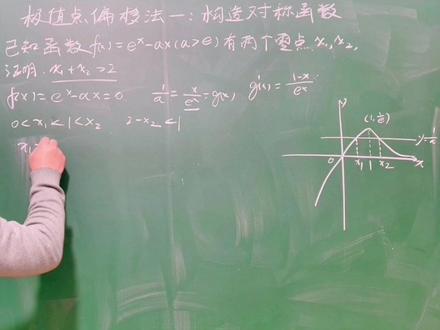 极值点偏移法一：构造对称函数
已知函数 f(x)=eˣ-ax(a>e)有两个零点 x₁,x₂,
证明: x₁+x₂>2
f(x)=eˣ-ax=0 1/a=x/eˣ=g(x) g'(x)=(1-x)/eˣ
0<x₁<1<x₂ 2-x₂<1
x₁
y
(1,1/e)
y=1/a
0 x₁ 1 x₂ x